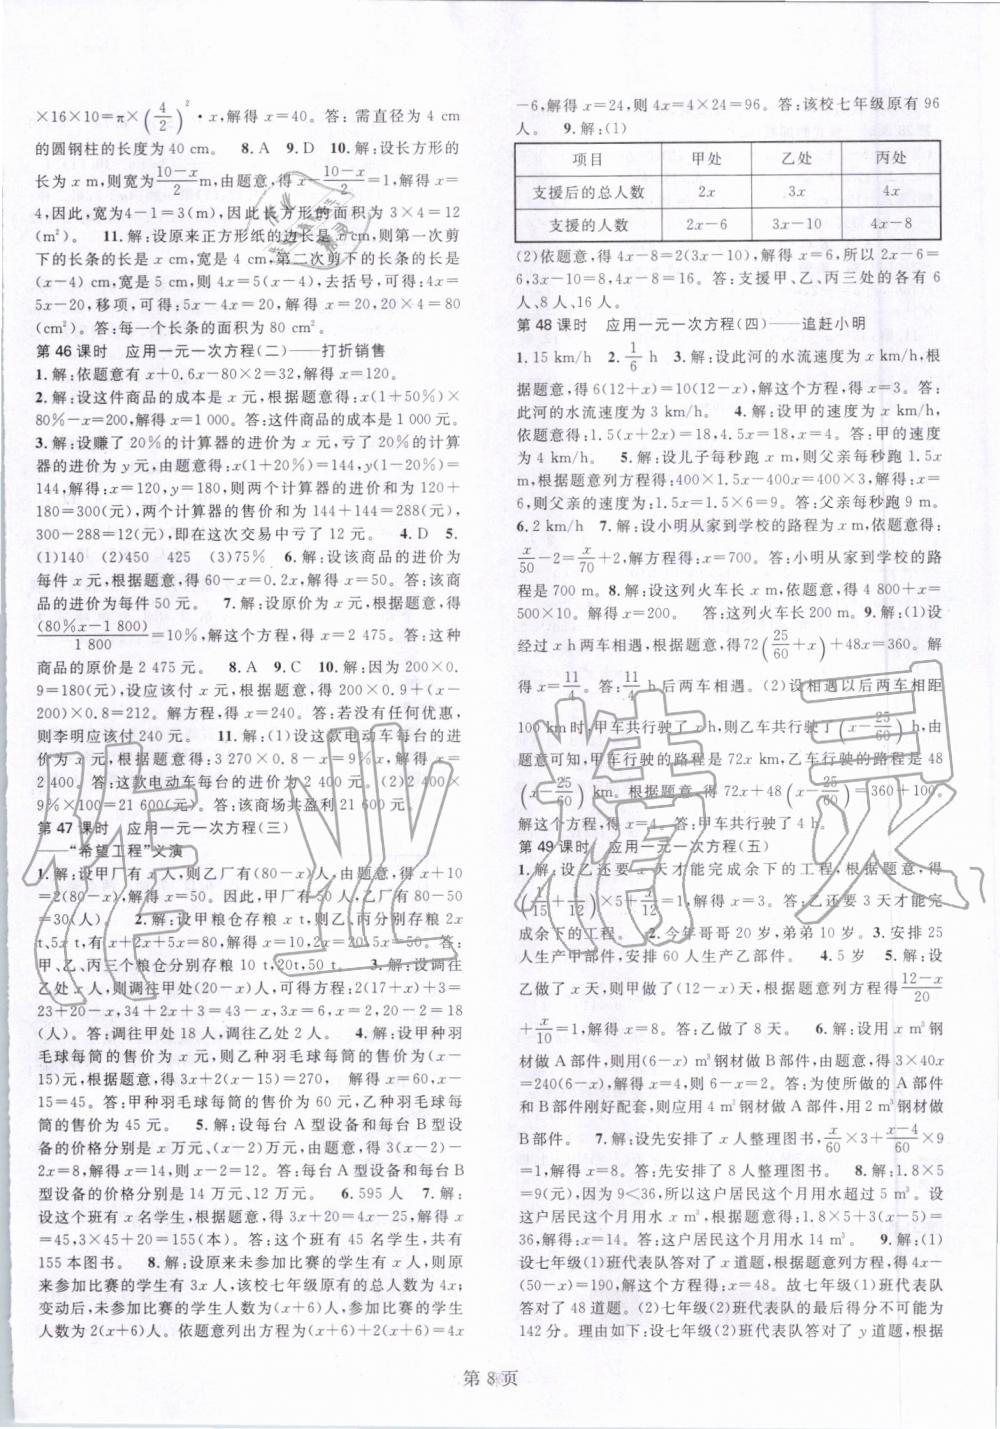 ×16×10=π×(4/2)²·x,解得 x=40。答:需直径为 4 cm
的圆钢柱的长度为 40 cm。 8. A 9. D 10. 解:设长方形的
长为 x m,则宽为(10-x)/2 m,由题意,得 x-(10-x)/2=1,解得 x=
4,因此,宽为4-1=3(m),因此长方形的面积为 3×4=12
(m²)。 11. 解:设原来正方形纸的边长是 x cm,则第一次剪
下的长条的长是 x cm,宽是 4 cm,第二次剪下的长条的长是
(x-4) cm,宽是 5 cm,则 4x=5(x-4),去括号,可得:4x=
5x-20,移项,可得:5x-4x=20,解得 x=20,20×4=80
(cm²)。答:每一个长条的面积为 80 cm²。
第 46 课时 应用一元一次方程(二)——打折销售
1. 解:依题意有 x+0.6x-80×2=32,解得 x=120。
2. 解:设这件商品的成本是 x 元,根据题意得:x(1+50%)×
80%-x=200,解得:x=1 000。答:这件商品的成本是 1 000 元。
3. 解:设赚了 20%的计算器的进价为 x 元,亏了 20%的计算
器的进价为 y 元,由题意得:x(1+20%)=144,y(1-20%)=
144,解得:x=120,y=180,则两个计算器的进价和为 120+
180=300(元),两个计算器的售价和为 144+144=288(元),
300-288=12(元),即在这次交易中亏了 12 元。 4. D 5.
(1)140 (2)450 425 (3)75% 6. 解:设该商品的进价为
每件 x 元,根据题意,得 60-x=0.2x,解得 x=50。答:该商
品的进价为每件 50 元。 7. 解:设原价为 x 元,根据题意,得
(80%x-1 800)/1 800=10%,解这个方程,得 x=2 475。答:这种
商品的原价是 2 475 元。 8. A 9. C 10. 解:因为 200×0.
9=180(元),设应该付 x 元,根据题意,得 200×0.9+(x-
200)×0.8=212。解方程,得 x=240。答:若没有任何优惠,
则李明应付 240 元。 11. 解:(1)设这款电动车每台的进
价为 x 元,根据题意,得:3 270×0.8-x=9%x,解得:x=
2 400。答:这款电动车每台的进价为 2 400 元。(2)2 400×
9%×100=21 600(元)。答:该商场共盈利 21 600 元。
第 47 课时 应用一元一次方程(三)
——“希望工程”义演
1. 解:设甲厂有 x 人,则乙厂有(80-x)人,根据题意,得 x+10=
2(80-x-10),解得 x=50,因此,甲厂有 50 人,乙厂有 80-50
=30(人)。 2. 解:设甲粮仓存粮 x t,则乙、丙分别存粮 2x
t、5x t,则有 x+2x=30,解得 x=10,2x=20,5x=50。答:
甲、乙、丙三个粮仓分别存粮 10 t,20t,50 t。 3. 解:设调往
乙处 x 人,则调往甲处(20-x)人,可得方程:2(17+x)+3=
23+20-x,34+2x+3=43-x,3x=6,x=2,则 20-2=18
(人)。答:调往甲处 18 人,调往乙处 2 人。 4. 解:设甲种羽
毛球每筒的售价为 x 元,则乙种羽毛球每筒的售价为(x-
15)元,根据题意,得 2x+3(x-15)=270, 解得 x=60,x-
15=45。答:甲种羽毛球每筒的售价为 60 元,乙种羽毛球每
筒的售价为 45 元。 5. 解:设每台 A 型设备和每台 B 型设
备的价格分别是 x 万元、(x-2)万元,由题意,得 3(x-2)-
2x=8,解得 x=14,x-2=12。答:每台 A 型设备和每台 B
型设备的价格分别是 14 万元、12 万元。 6. 595 人 7. 解:
设这个班有 x 名学生,根据题意,得 3x+20=4x-25,解得 x
=45,3×45+20=155(本)。答:这个班有 45 名学生,共有
155 本图书。 8. 解:设原来未参加比赛的学生有 x 人,则原
来参加比赛的学生有 3x 人,该校七年级原有的总人数为 4x;
变动后,未参加比赛的学生人数为(x+6)人,参加比赛的学生
人数为 2(x+6)人。依题意列出方程为(x+6)+2(x+6)=4x
-6,解得 x=24,则 4x=4×24=96。答:该校七年级原有 96
人。 9. 解:(1)
项目 甲处 乙处 丙处
支援后的总人数 2x 3x 4x
支援的人数 2x-6 3x-10 4x-8
(2)依题意,得 4x-8=2(3x-10),解得 x=6,所以 2x-6=
6,3x-10=8,4x-8=16。答:支援甲、乙、丙三处的各有 6
人、8 人、16 人。
第 48 课时 应用一元一次方程(四)——追赶小明
1. 15 km/h 2. 1/6 h 3. 解:设此河的水流速度为 x km/h,根
据题意,得 6(12+x)=10(12-x),解这个方程,得 x=3。答:
此河的水流速度为 3 km/h。 4. 解:设甲的速度为 x km/h,
依题意得:1.5(x+2x)=18,4.5x=18,x=4。答:甲的速度
为 4 km/h。 5. 解:设儿子每秒跑 x m,则父亲每秒跑 1.5x
m。根据题意列方程得:400×1.5x-400x=400×2,解得:x=
6,则父亲的速度为:1.5x=1.5×6=9。答:父亲每秒跑 9 m。
6. 2 km/h 7. 解:设小明从家到学校的路程为 x m,依题意得:
x/50-2=x/70+2,解方程得:x=700。答:小明从家到学校的路
程是 700 m。 8. 解:设这列火车长 x m,依题意,得 x+800=
500×10。解得 x=200。 答:这列火车长 200 m。 9. 解:(1)设
经过 x h两车相遇,根据题意,得72(25/60+x)+48x=360。解
得 x=11/4。答:11/4 h后两车相遇。(2)设相遇以后两车相距
100 km时,甲车共行驶了 x h,则乙车行驶了(x-25/60)h,由
题意可知,甲车行驶的路程为 72x km,乙车行驶的路程为 48
(x-25/60) km。根据题意,得 72x+48(x-25/60)=360+100。
解这个方程,得 x=4。答:甲车共行驶了 4 h。
第 49 课时 应用一元一次方程(五)
1. 解:设乙还要 x 天才能完成余下的工程,根据题意,得
(1/15+1/12)×5+x/12=1,解得 x=3。答:乙还要 3 天才能完
成余下的工程。 2. 今年哥哥 20 岁,弟弟 10 岁。 3. 安排 25
人生产甲部件,安排 60 人生产乙部件。 4. 5 岁 5. 解:设
乙做了 x 天,则甲做了(12-x)天,根据题意列方程得(12-x)/20
+x/10=1,解得 x=8。答:乙做了 8 天。 6. 解:设用 x m³钢
材做 A 部件,则用(6-x) m³钢材做 B 部件,由题意,得 3×40x
=240(6-x),解得 x=4,则 6-x=2。答:为使所做的 A 部件
和 B 部件刚好配套,则应用 4 m³钢材做 A 部件,用 2 m³钢材做
B 部件。 7. 解:设先安排了 x 人整理图书,x/60×3+(x-4)/60×9
=1,解得 x=8。答:先安排了 8 人整理图书。 8. 解:1.8×5
=9(元),因为 9<36,所以这户居民这个月用水超过 5 m³。设
这户居民这个月用水 x m³。根据题意,得:1.8×5+3(x-5)=
36,解得:x=14。答:这户居民这个月用水 14 m³。 9. 解:(1)
设七年级(1)班代表队答对了 x 道题,根据题意,得 4x-
(50-x)=190,解这个方程得:x=48。故七年级(1)班代表队
答对了 48 道题。(2)七年级(2)班代表队的最后得分不可能为
142 分。理由如下:设七年级(2)班代表队答对了 y 道题,根据
第 8 页
作业精灵